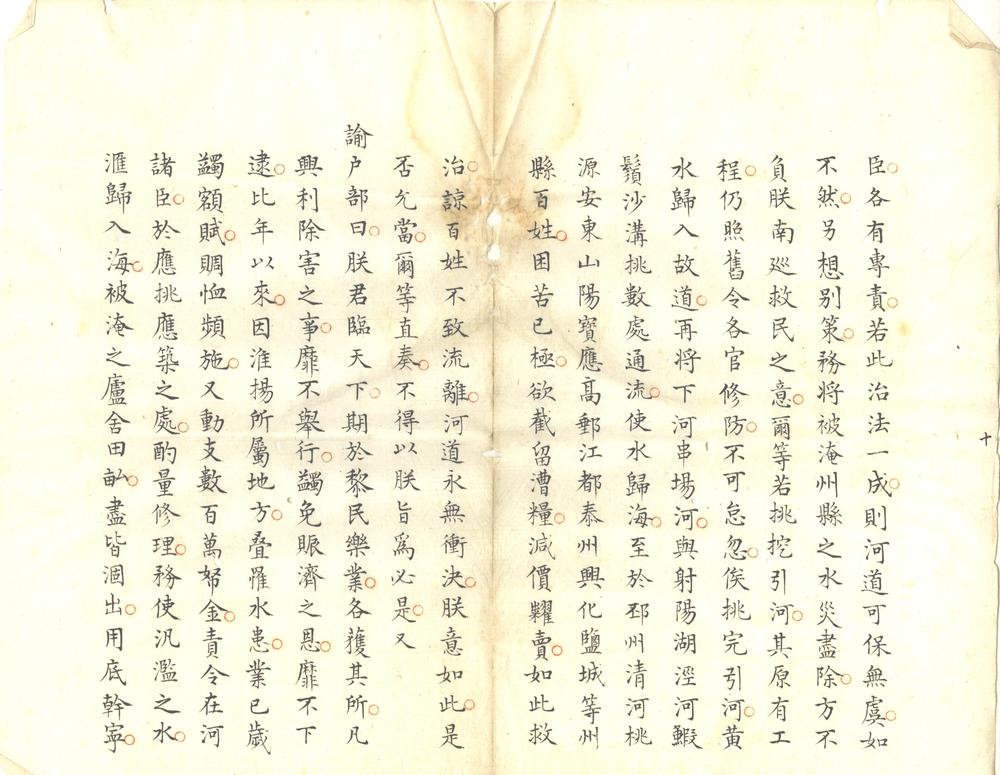 臣各有專責若此治法一成則河道可保無虞如
不然另想别策務將被淹州縣之水災盡除方不
負朕南巡救民之意爾等若挑挖引河其原有工
程仍照舊令各官修防不可怠忽俟挑完引河黄
水歸入故道再將下河串場河與射陽湖涇河鰕
鬚沙溝挑數處通流使水歸海至於邳州清河桃
源安東山陽寶應高郵江都泰州興化鹽城等州
縣百姓困苦已極欲截留漕糧減價糶賣如此救
治諒百姓不致流離河道永無衝決朕意如此是
否允當爾等直奏不得以朕旨爲必是又
諭户部曰朕君臨天下期於黎民樂業各獲其所凡
興利除害之事靡不舉行蠲免賑濟之恩靡不下
逮比年以來因淮揚所屬地方叠罹水患業已歲
蠲額賦賙恤頻施又動支數百萬帑金責令在河
諸臣於應挑應築之處酌量修理務使汎濫之水
滙歸入海被淹之廬舍田畝盡皆涸出用底幹寧
十